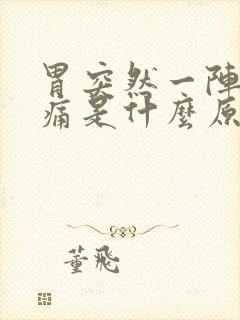 胃突然一陣
痛是什麼原
董飛